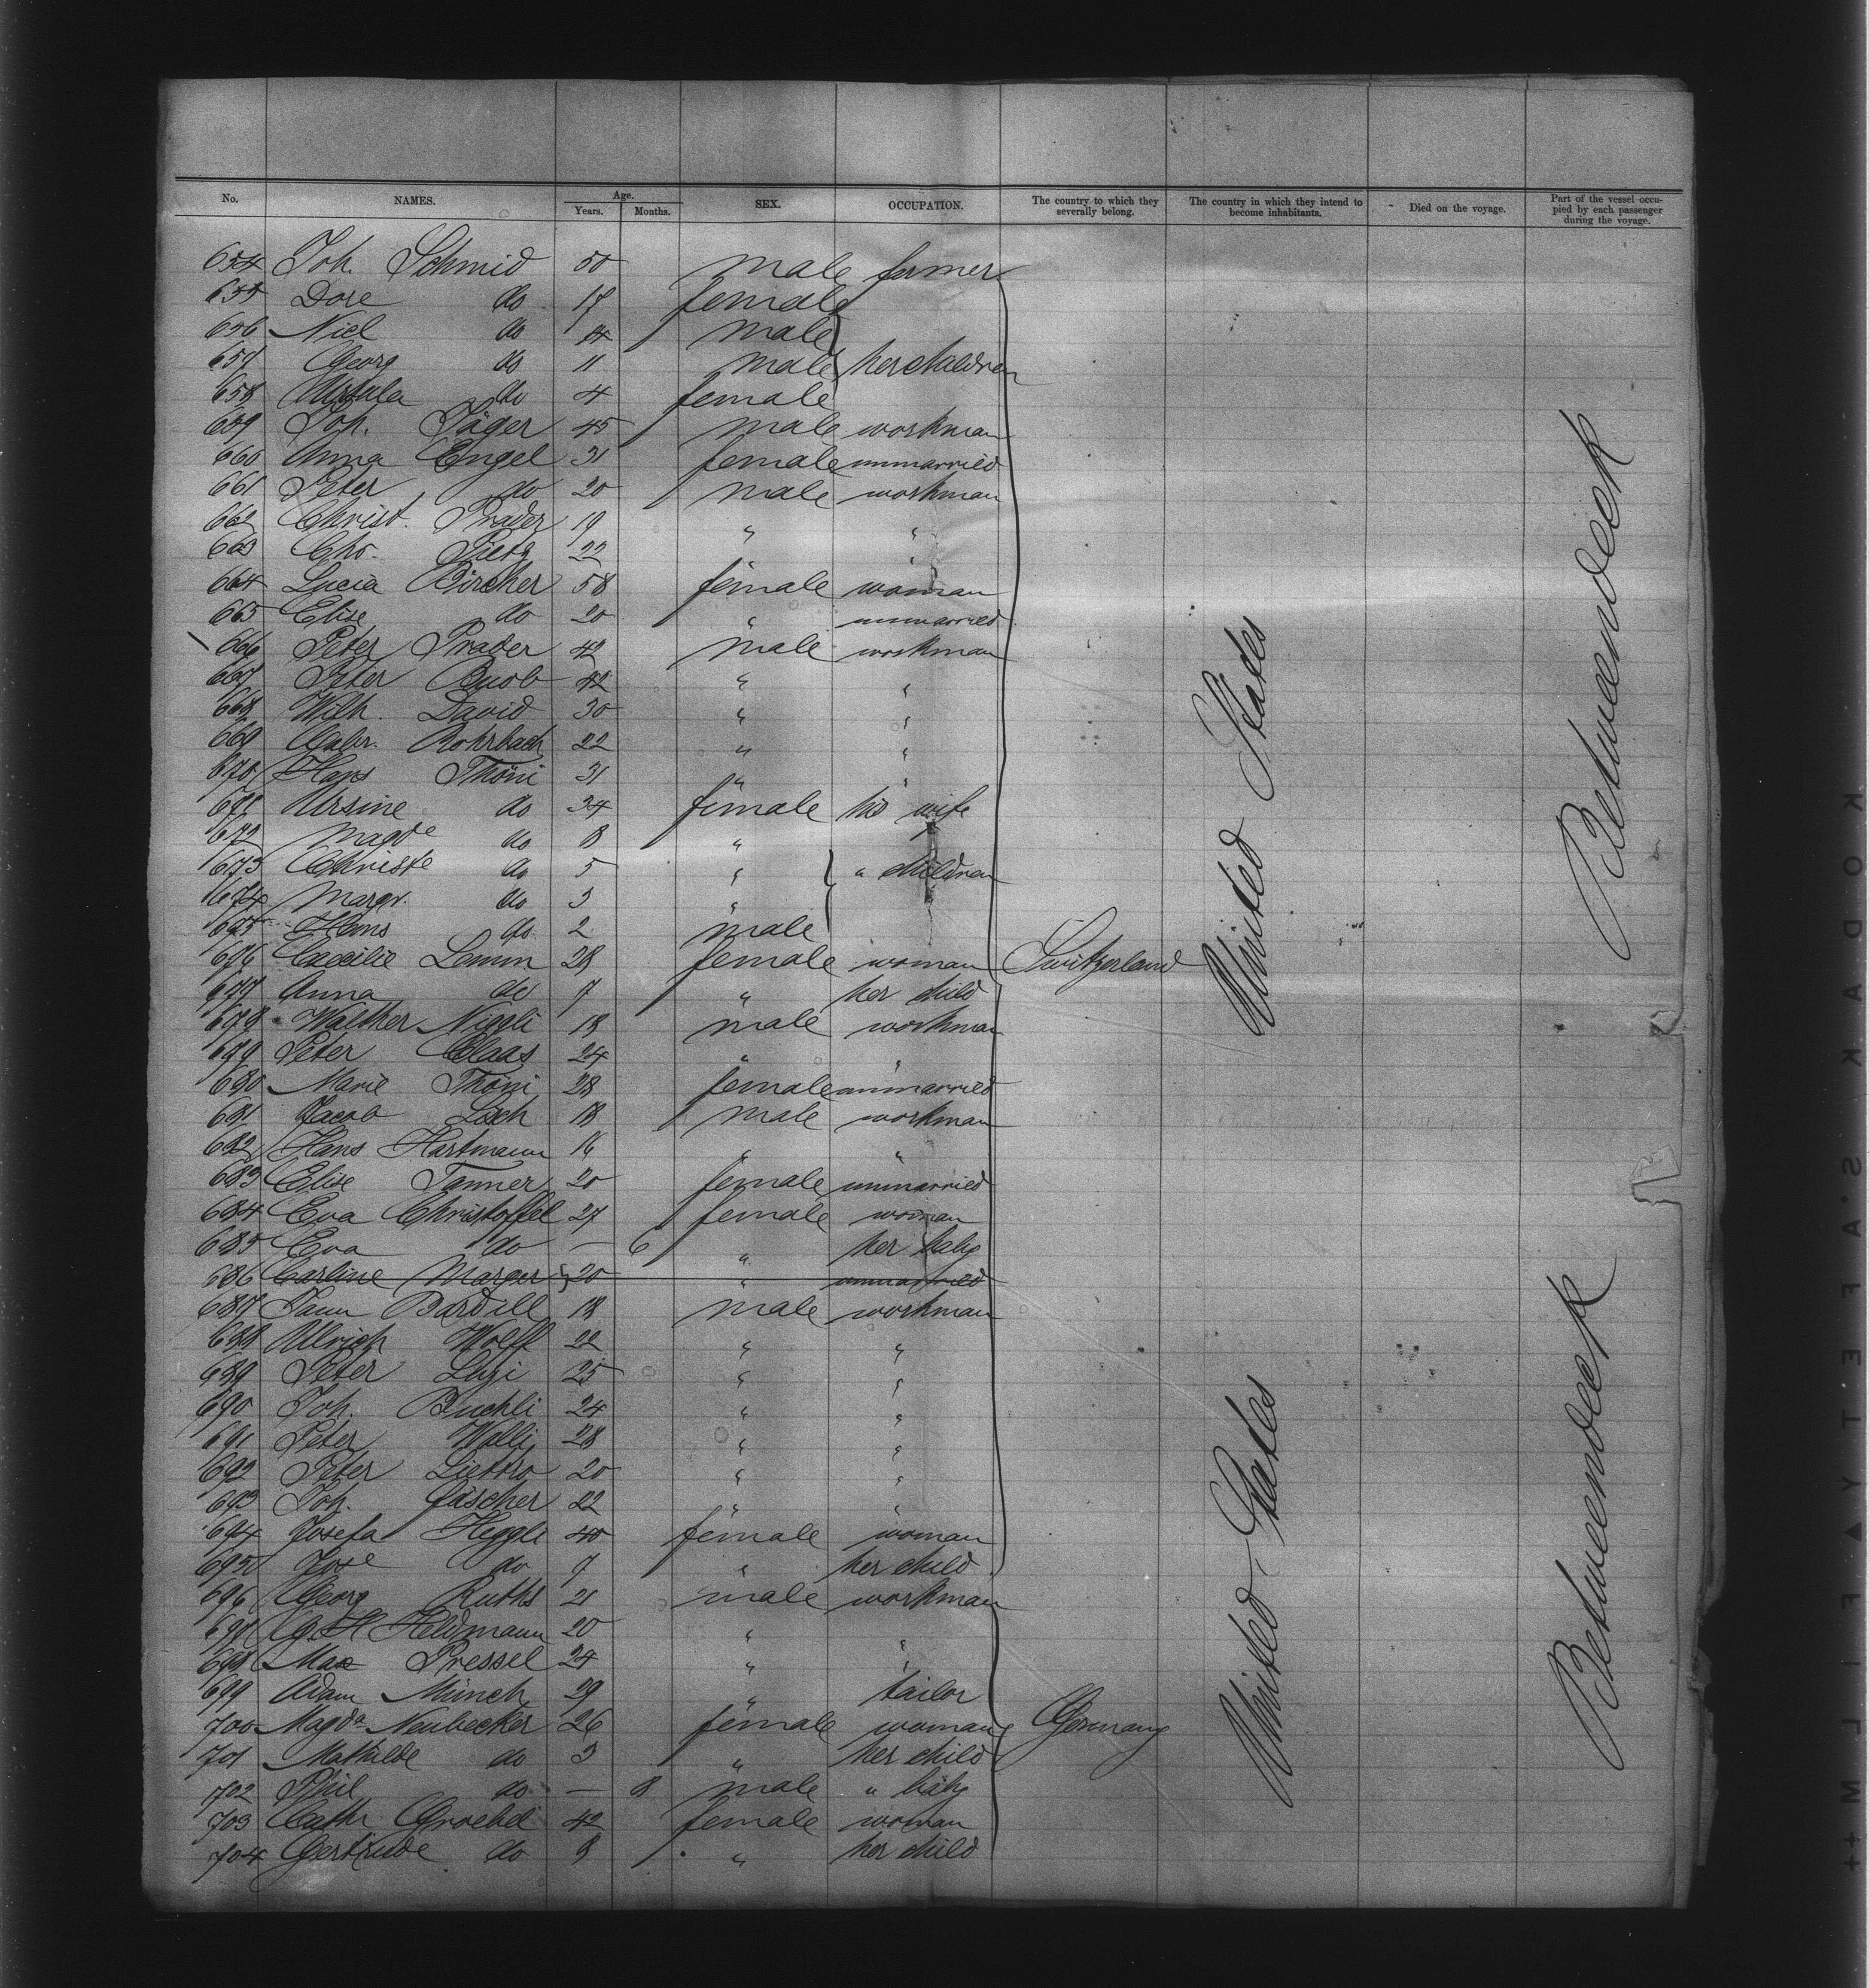 No. NAMES. Age. Years. Months. SEX. OCCUPATION. The country to which they severally belong. The country in which they intend to become inhabitants. Died on the voyage. Part of the vessel occupied by each passenger during the voyage.
654 Joh. Schmid 50 male farmer
655 Dore do 17 female
656 Nicl do male
657 Georg do 11 male her children
658 Ursula do 4 female
659 Joh. Jäger 45 male workman
660 Anna Engel 31 female unmarried
661 Peter do 20 male workman
662 Christ. Prader 19 " "
663 Chr. 22 "
664 Lucia Bircher 58 female woman
665 Elise do 20 " unmarried
666 Peter Prader 42 male workman
667 Peter Buob 42 " "
668 Wilh. David 30 " "
669 Rohrbach 22 " "
670 Hans Thöni 31 " "
671 Ursine do 34 female his wife
672 Magde do 8 "
673 Christe do 5 " " children
674 Margr. do 3 "
675 Hans do 2 male
676 Caecilie Lemm 28 female woman Switzerland United States Betweendeck
677 Anna do 7 " her child
678 Walther Niggli 18 male workman
679 Peter Claas 24 " "
680 Marie Thöni 28 female unmarried
681 Jacob Loch 18 male workman
682 Hans Hartmann 16 " "
683 Elise Tanner 20 female unmarried
684 Eva Christoffel 27 female woman
685 Eva do — 6 " her baby
686 Carline Marger 20 " unmarried
687 Bardill 18 male workman
688 Ulrich Wolff 22 " "
689 Peter Luzi 25 " "
690 Joh. Buchli 24 " "
691 Peter Walli 28 " "
692 Peter 20 " "
693 Joh. 22 " "
694 Josefa Heggli 40 female woman
695 do 7 " her child
696 Georg Ruths 21 male workman
697 Heldmann 20 " "
698 Max Pressel 24 " "
699 Adam Münch 29 " tailor
700 Magda Neubecker 26 female woman Germany United States Betweendeck
701 Mathilde do 3 " her child
702 Phil do — 8 male " baby
703 Cath Groebel 42 female woman
704 Gertrude do 9 " her child
KODAK S'AFETY ▲ FILM ++